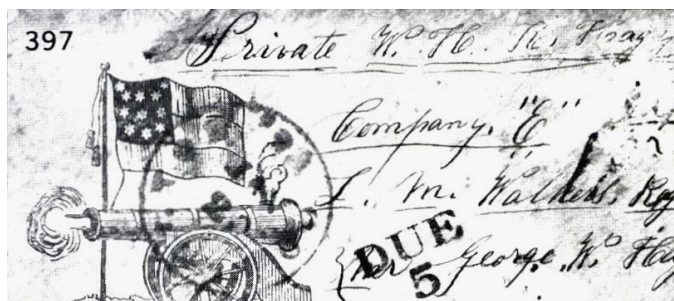 397
Private W. H. Th.
Company, "E"
L. M. Walker's Reg
DUE
5
George. W.